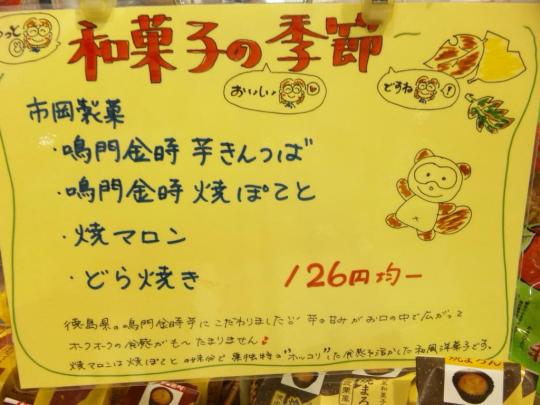 っと
和菓子の季節
おいしい♡
どすね!
市岡製菓
・鳴門金時 芋きんつば
・鳴門金時 焼ぽてと
・焼マロン
・どら焼き
126円均一
徳島県の鳴門金時芋にこだわりました 芋の甘みがお口の中で広がって
ホクホクの食感がも〜たまりません♪
焼マロンは焼ぽてとの味わいで栗独特の"ホッコリ"した食感を活かした和風洋菓子です。